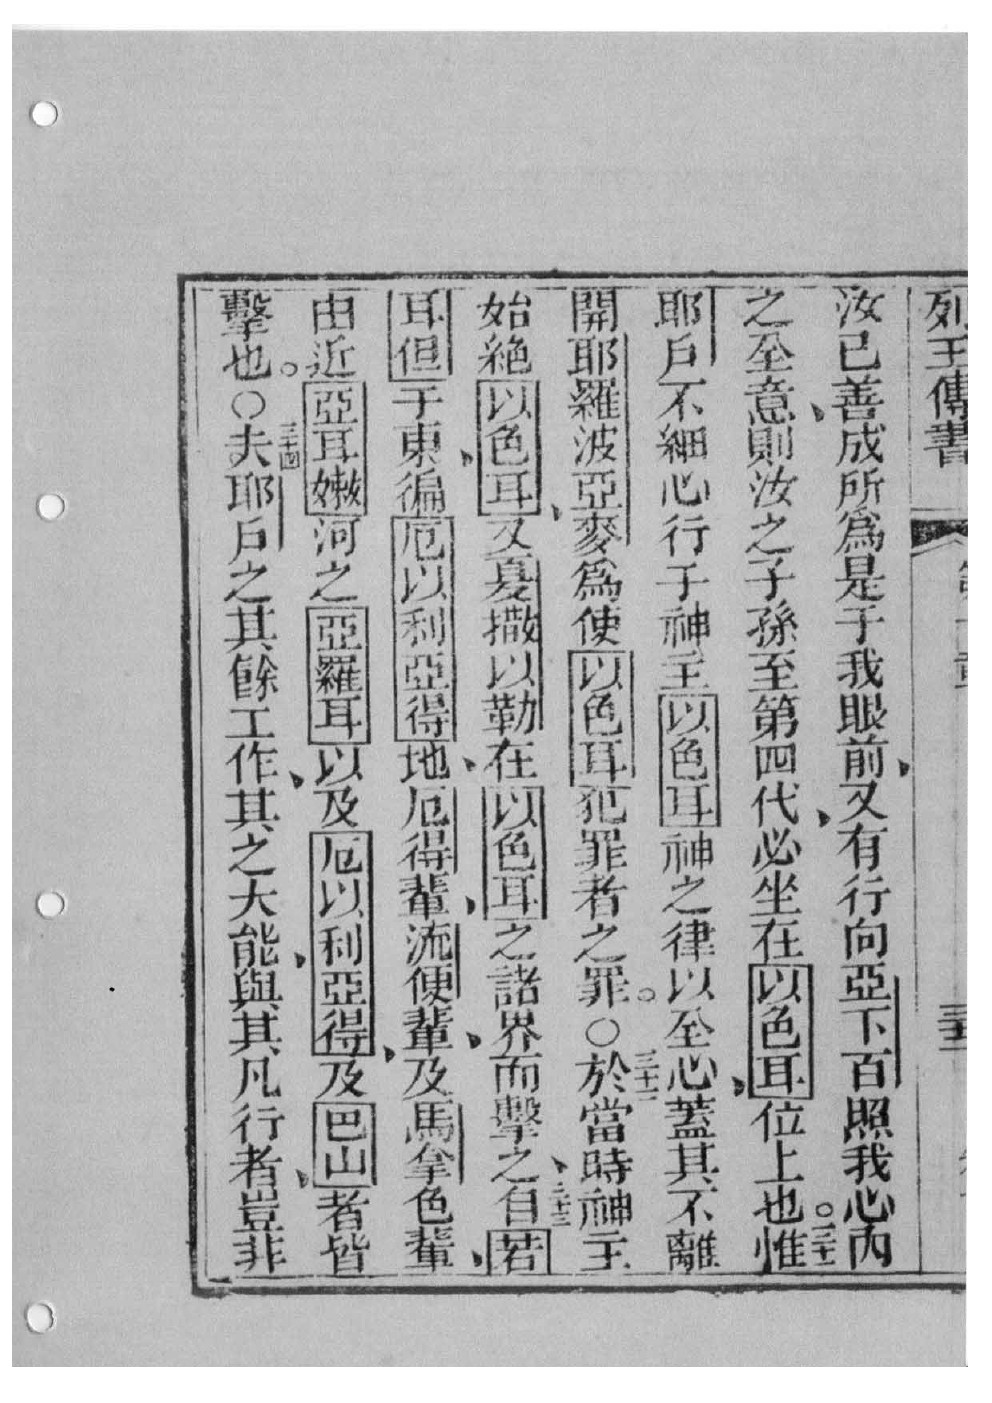 列王傳書
汝已善成所爲是于我眼前、又有行向亞下百照我心內
之至意、則汝之子孫至第四代、必坐在以色耳位上也。三十一惟
耶戶不細心行于神主以色耳神之律以至心、蓋其不離
開耶羅波亞麥爲使以色耳犯罪者之罪。○三十二於當時神主
始絕以色耳、又戞撒以勒在以色耳之諸界而擊之、三十三自若
耳但于東、徧厄以利亞得地、厄得輩、流便輩、及馬拿色輩、
由近亞耳嫩河之亞羅耳以及厄以利亞得、及巴山者皆
擊也。○三十四夫耶戶之其餘工作、其之大能、與其凡行者、豈非